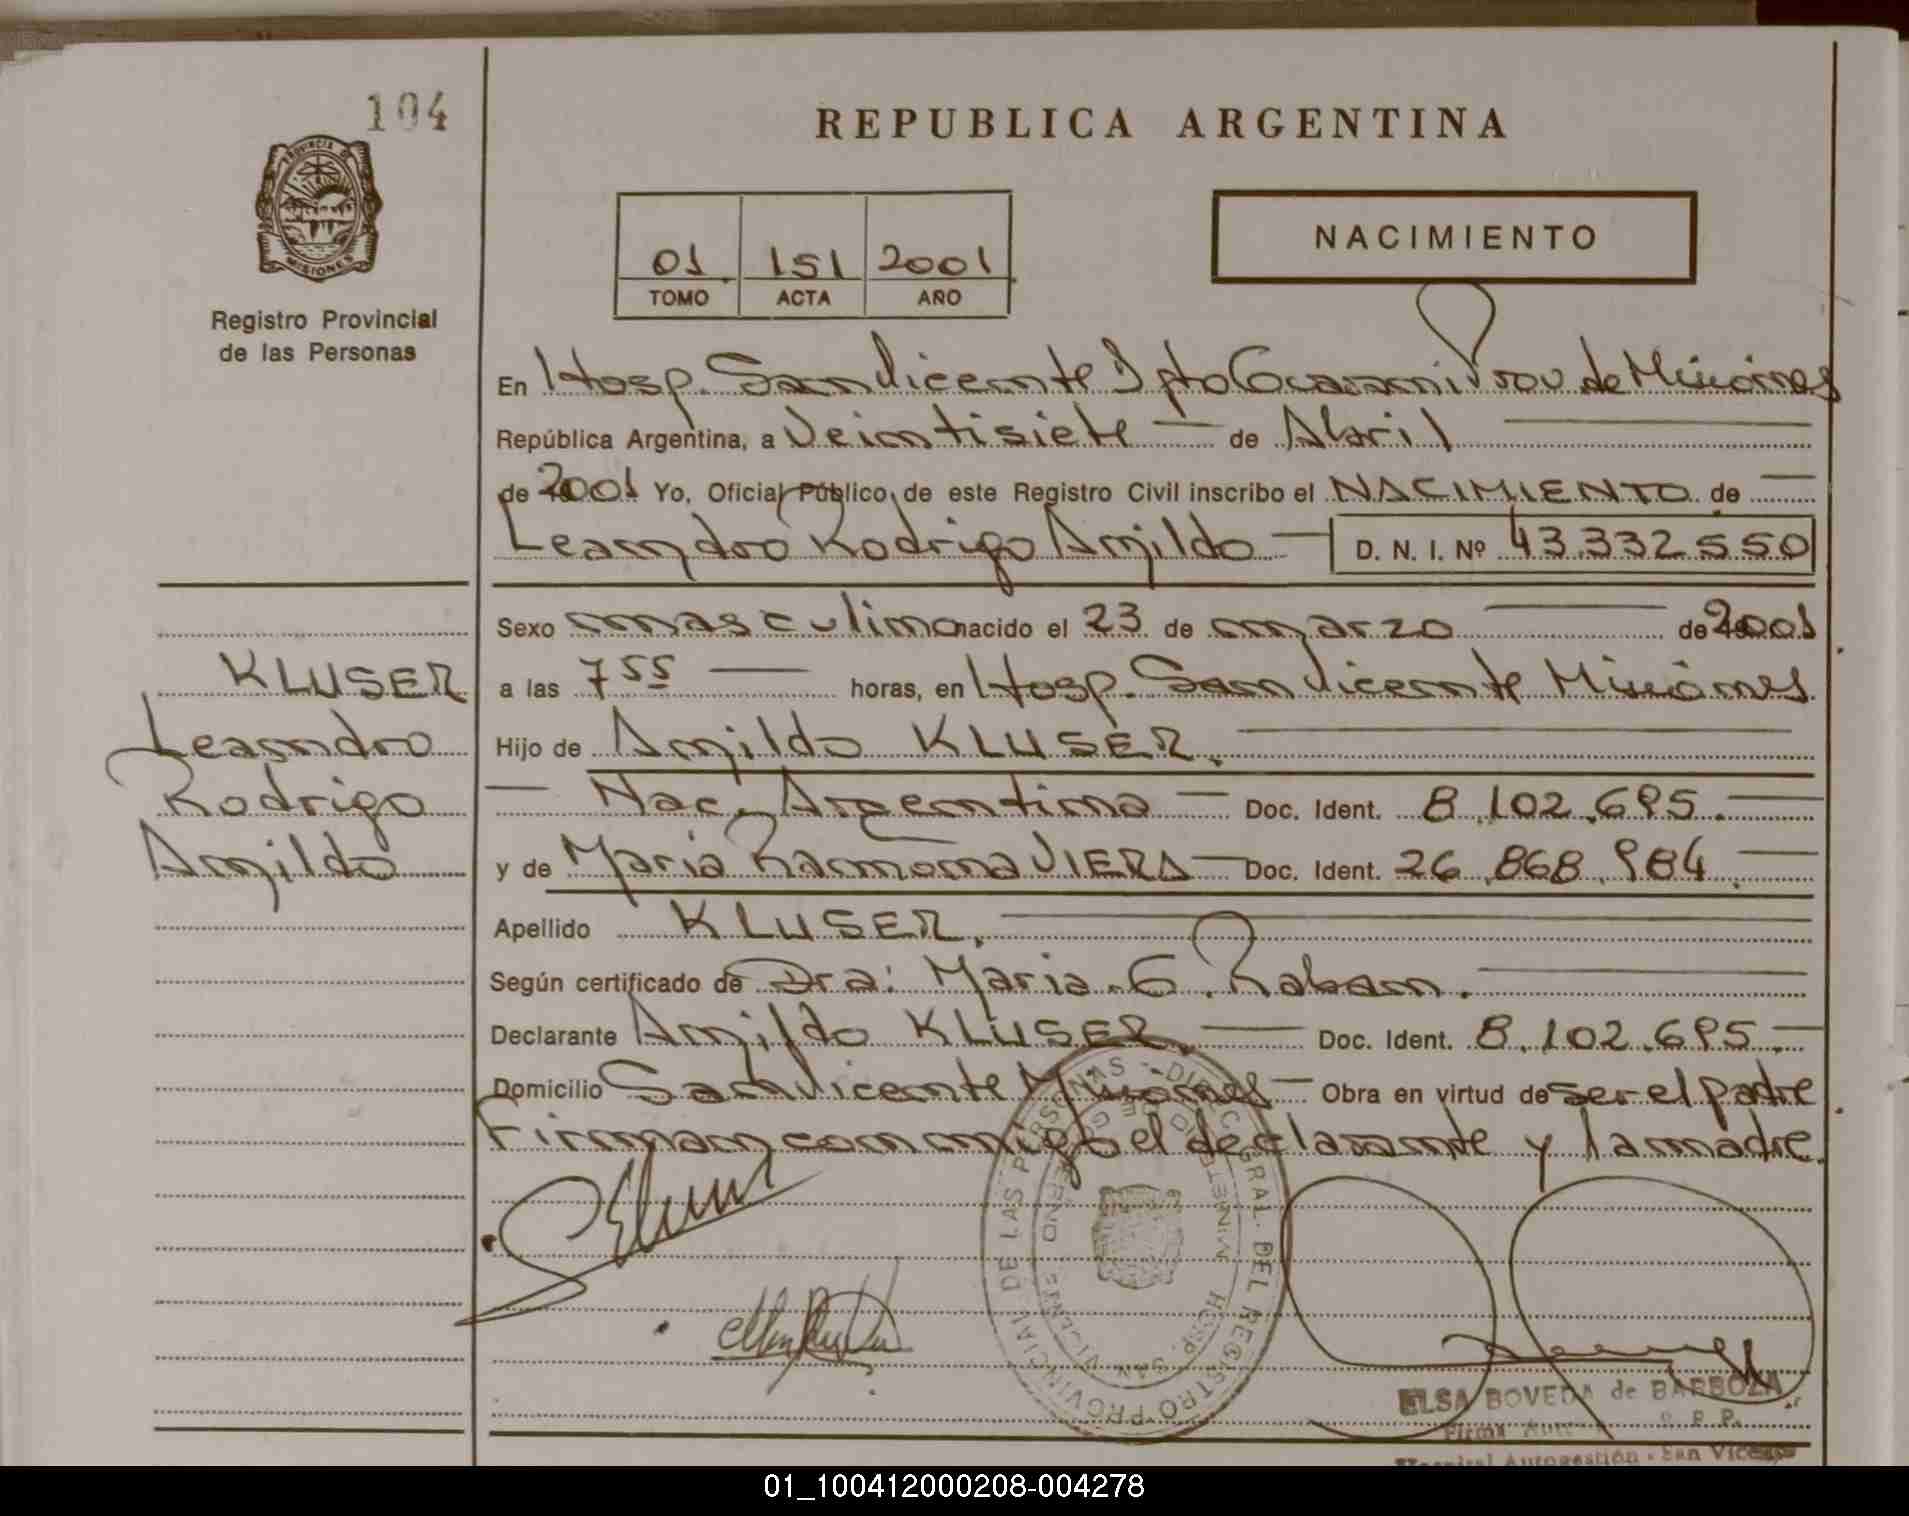 104
REPUBLICA ARGENTINA
PROVINCIA DE
MISIONES
Registro Provincial
de las Personas
01 151 2001
TOMO ACTA AÑO
NACIMIENTO
En Hosp. San Vicente Dpto Guaraní Prov de Misiones
República Argentina, a Veintisiete de Abril
de 2001 Yo, Oficial Público, de este Registro Civil inscribo el NACIMIENTO de
Leandro Rodrigo Anjildo D. N. I. Nº 43.332.550
Sexo masculino nacido el 23 de marzo de 2001
a las 7 55 horas, en Hosp. San Vicente Misiones
Hijo de Anjildo KLUSER.
Nac. Argentina Doc. Ident. 8.102.695.
y de Maria Ramona VIERA Doc. Ident. 26.868.984.
Apellido KLUSER.
Según certificado de Dra: Maria G. Raban.
Declarante Anjildo KLUSER. Doc. Ident. 8.102.695.
Domicilio San Vicente Misiones Obra en virtud de ser el padre
Firman conmigo el declarante y la madre.
KLUSER
Leandro
Rodrigo
Anjildo
DIREC. GRAL. DEL REGISTRO PROVINCIAL DE LAS PERSONAS
HOSP. SAN VICENTE
ELSA BOVEDA de BARBOZA
Firma
Hospital Autogestión - San Vicente
01_100412000208-004278